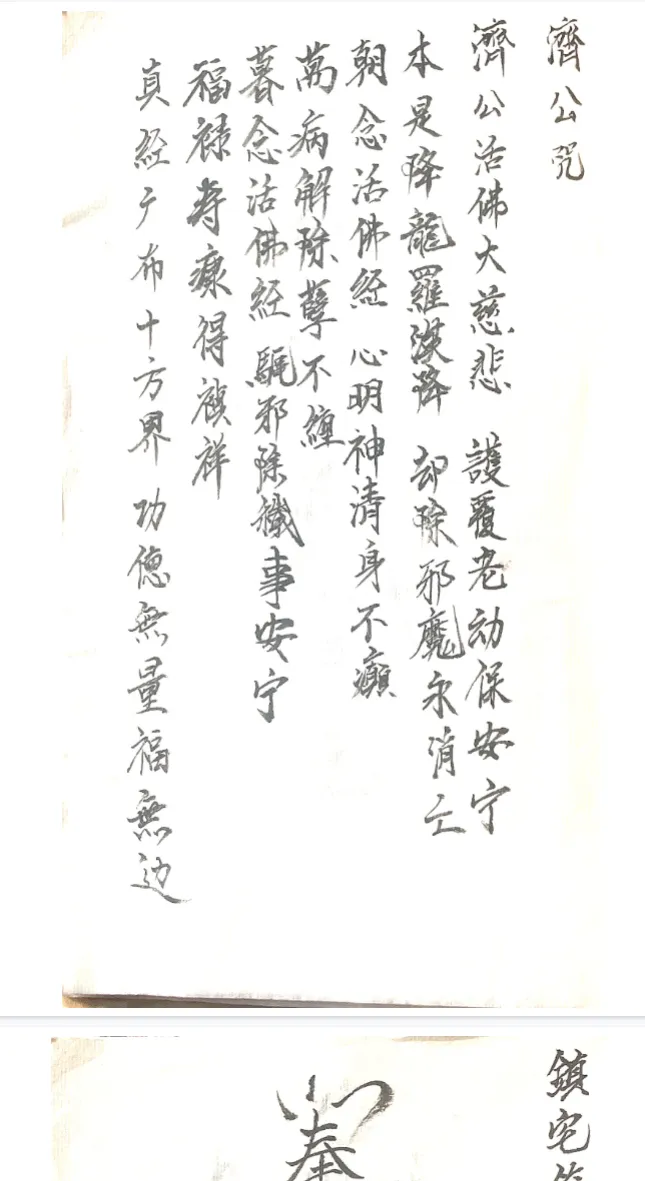 濟公咒
濟公活佛大慈悲 護覆老幼保安宁
本是降龍羅漢降 却除邪魔永消亡
朝念活佛經 心明神清身不癲
萬病解除孽不纏
暮念活佛経 駈邪除穢事安宁
福禄寿康得祯祥
真経广布十方界功德無量福無边
鎮宅
奉